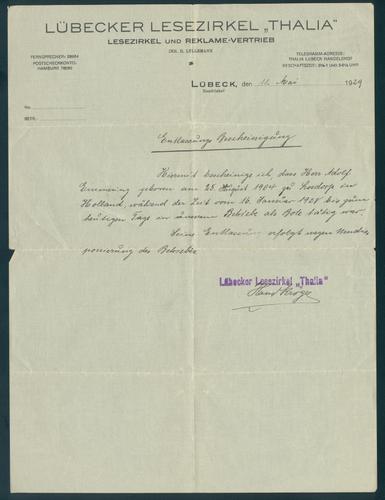 LÜBECKER LESEZIRKEL „THALIA"
LESEZIRKEL UND REKLAME-VERTRIEB
INH. H. LÜLLEMANN
FERNSPRECHER:
POSTSCHECKKONTO:
HAMBURG
TELEGRAMM-ADRESSE:
THALIA LÜBECK HANDELSHOF
GESCHÄFTSZEIT: UHR
LÜBECK, den 11. Mai 1929
No.
BETR.
Entlassungs Bescheinigung
Hiermit bescheinige ich, dass Herr Adolf
Emmering geboren am 25. August 1904 zu in
Holland, während der Zeit vom 16. Januar 1928 bis zum
heutigen Tage in unserem Betriebe als Bote tätig war.
Seine Entlassung erfolgt wegen
des Betriebes
Lübecker Lesezirkel „Thalia"